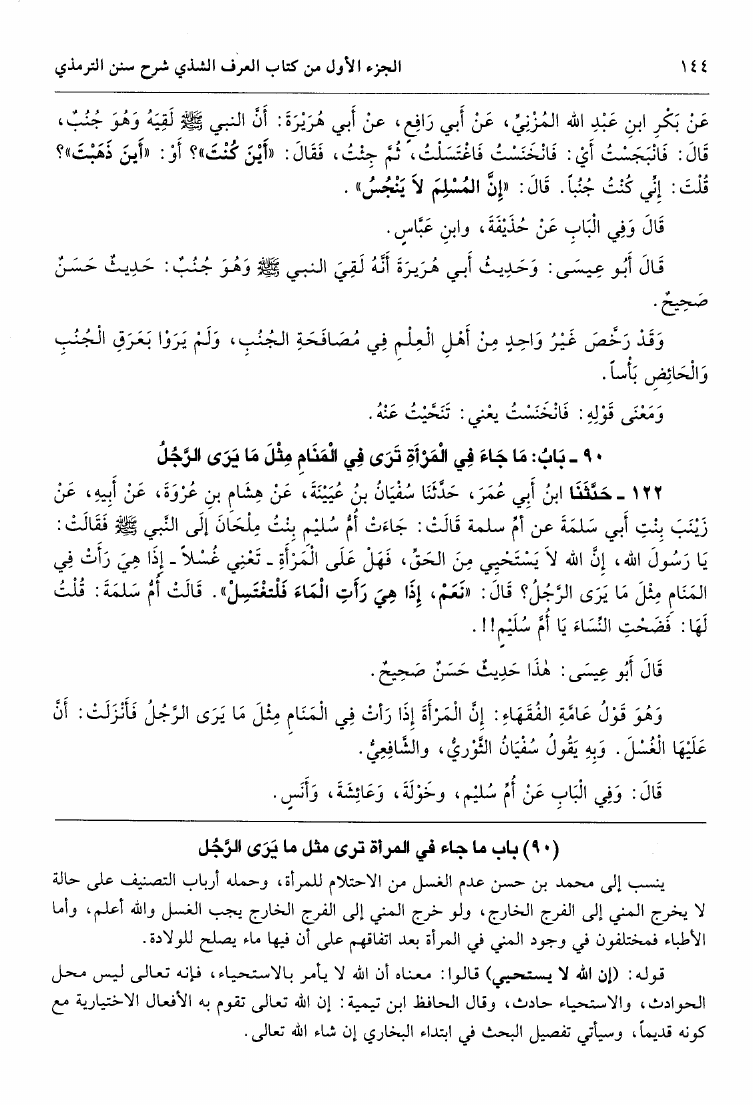 ١٤٤ الجزء الأول من كتاب العرف الشذي شرح سنن الترمذي
عَنْ بَكْرِ ابنِ عَبْدِ الله المُزْنِيِّ، عَنْ أبي رَافِعٍ، عنْ أبي هُرَيْرَةَ: أَنَّ النبي ﷺ لَقِيَهُ وَهُوَ جُنُبٌ،
قَالَ: فَانْبَجَسْتُ أيْ: فَانْخَنَسْتُ فَاغْتَسَلْتُ، ثُمَّ جِئْتُ، فَقَالَ: «أَيْنَ كُنْتَ»؟ أوْ: «أينَ ذَهَبْتَ»؟
قُلْتَ: إنِّي كُنْتُ جُنُباً. قَالَ: «إنَّ المُسْلِمَ لاَ يَنْجُسُ».
قَالَ وَفِي الْبَابِ عَنْ حُذَيْفَةَ، وابنِ عَبَّاسٍ.
قَالَ أَبُو عِيسَى: وَحَدِيثُ أبي هُرَيرَةَ أنَّهُ لَقِيَ النبي ﷺ وَهُوَ جُنُبٌ: حَدِيثٌ حَسَنٌ
صَحِيحٌ.
وَقَدْ رَخَّصَ غَيْرُ وَاحِدٍ مِنْ أهْلِ الْعِلْمِ فِي مُصَافَحَةِ الجُنُبِ، وَلَمْ يَرَوْا بَعَرَقِ الْجُنُبِ
وَالْحَائِضِ بَأْساً.
وَمَعْنَى قَوْلِهِ: فَانْخَنَسْتُ يعْني: تَنَحَّيْتُ عَنْهُ.
٩٠ ـ بَابُ: مَا جَاءَ فِي الْمَرْأَةِ تَرَى فِي الْمَنَامِ مِثْلَ مَا يَرَى الرَّجُلُ
١٢٢ ـ حَدَّثَنَا ابنُ أبي عُمَرَ، حَدَّثَنَا سُفْيَانُ بنُ عُيَيْنَةَ، عَنْ هِشَامِ بنِ عُرْوَةَ، عَنْ أَبِيهِ، عَنْ
زَيْنَبَ بِنْتِ أبي سَلمَةَ عن أمِّ سلمة قَالَتْ: جَاءَتْ أُمُّ سُلَيْمٍ بِنْتُ مِلْحَانَ إلَى النَّبي ﷺ فَقَالَتْ:
يَا رَسُولَ الله، إنَّ الله لاَ يَسْتَحْيِي مِنَ الحَقِّ، فَهَلْ عَلَى الْمَرْأَةِ ـ تَعْنِي غُسْلاً ـ إذَا هِيَ رَأَتْ فِي
المَنَامِ مِثْلَ مَا يَرَى الرَّجُلُ؟ قَالَ: «نَعَمْ، إذَا هِيَ رَأَتِ الْمَاءَ فَلْتَغْتَسِلْ». قَالَتْ أُمُّ سَلمَةَ: قُلْتُ
لَهَا: فَضَحْتِ النِّسَاءَ يَا أُمَّ سُلَيْمٍ!!.
قَالَ أَبُو عِيسَى: هٰذَا حَدِيثٌ حَسَنٌ صَحِيحٌ.
وَهُوَ قَوْلُ عَامَّةِ الفُقَهَاءِ: إنَّ الْمَرْأَةَ إذَا رَأتْ فِي الْمَنَامِ مِثْلَ مَا يَرَى الرَّجُلُ فَأَنْزَلَتْ: أنَّ
عَلَيْهَا الْغُسْلَ. وَبِهِ يَقُولُ سُفْيَانُ الثَّوْرِيُّ، والشَّافِعِيُّ.
قَالَ: وَفِي الْبَابِ عَنْ أُمِّ سُليْمٍ، وخَوْلَةَ، وَعَائِشَةَ، وَأَنَسٍ.
(٩٠) باب ما جاء في المرأة ترى مثل ما يَرَى الرَّجُل
ينسب إلى محمد بن حسن عدم الغسل من الاحتلام للمرأة، وحمله أرباب التصنيف على حالة
لا يخرج المني إلى الفرج الخارج، ولو خرج المني إلى الفرج الخارج يجب الغسل والله أعلم، وأما
الأطباء فمختلفون في وجود المني في المرأة بعد اتفاقهم على أن فيها ماء يصلح للولادة.
قوله: (إن الله لا يستحيي) قالوا: معناه أن الله لا يأمر بالاستحياء، فإنه تعالى ليس محل
الحوادث، والاستحياء حادث، وقال الحافظ ابن تيمية: إن الله تعالى تقوم به الأفعال الاختيارية مع
كونه قديماً، وسيأتي تفصيل البحث في ابتداء البخاري إن شاء الله تعالى.